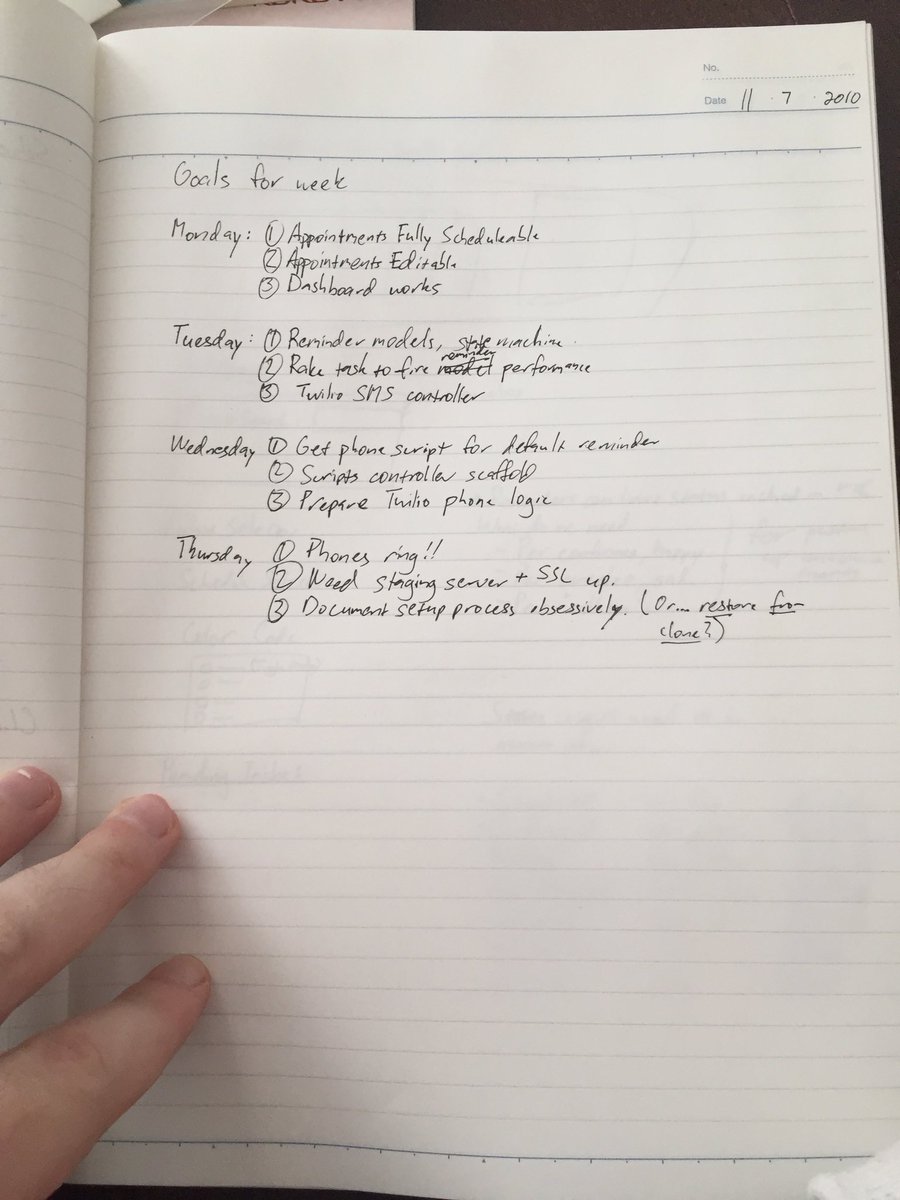 No.
Date 11 · 7 · 2010
Goals for week
Monday: ① Appointments Fully Scheduleable
② Appointments Editable
③ Dashboard works
Tuesday: ① Reminder models, state machine.
② Rake task to fire reminder performance
③ Twilio SMS controller
Wednesday ① Get phone script for default reminder
② Scripts controller scaffold
③ Prepare Twilio phone logic
Thursday ① Phones ring!!
② Need staging server + SSL up.
③ Document setup process obsessively. (Or... restore from
clone?)